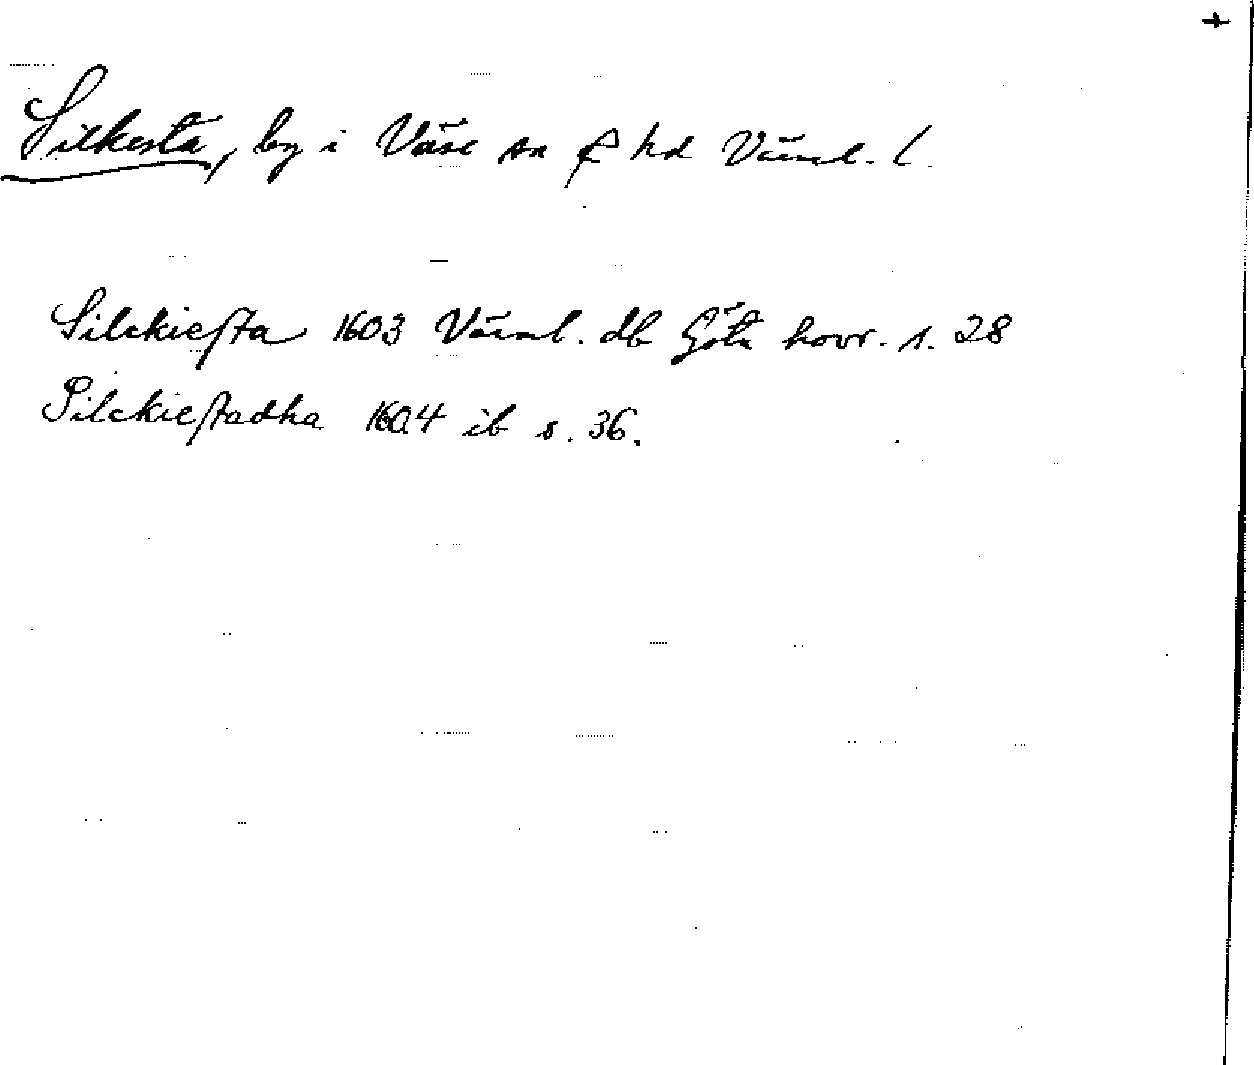 Silkesta, by i Väse sn f hd Värml. l.
Silckiesta 1603 Värml. db Göta hovr. s. 28
Silckiestadha 1604 ib s. 36.